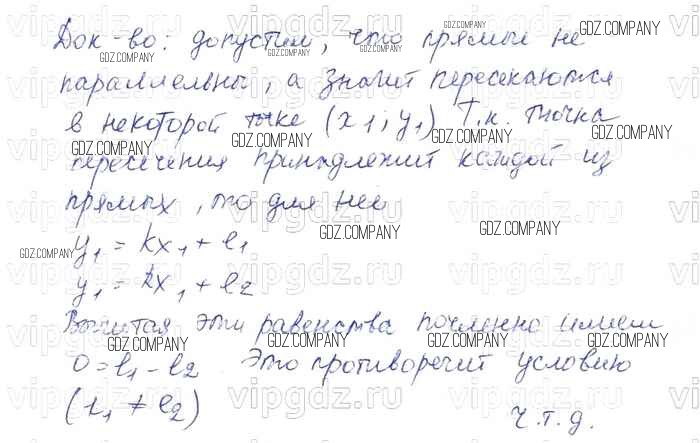 Док-во: допустим, что прямые не
параллельны, а значит пересекаются
в некоторой точке (x₁; y₁) Т.к. точка
пересечения принадлежит каждой из
прямых, то для неё
y₁ = kx₁ + l₁
y₁ = kx₁ + l₂
Вычитая эти равенства почленно имеем
0 = l₁ - l₂. Это противоречит условию
(l₁ ≠ l₂)
ч.т.д.
GDZ.COMPANY
vipgdz.ru